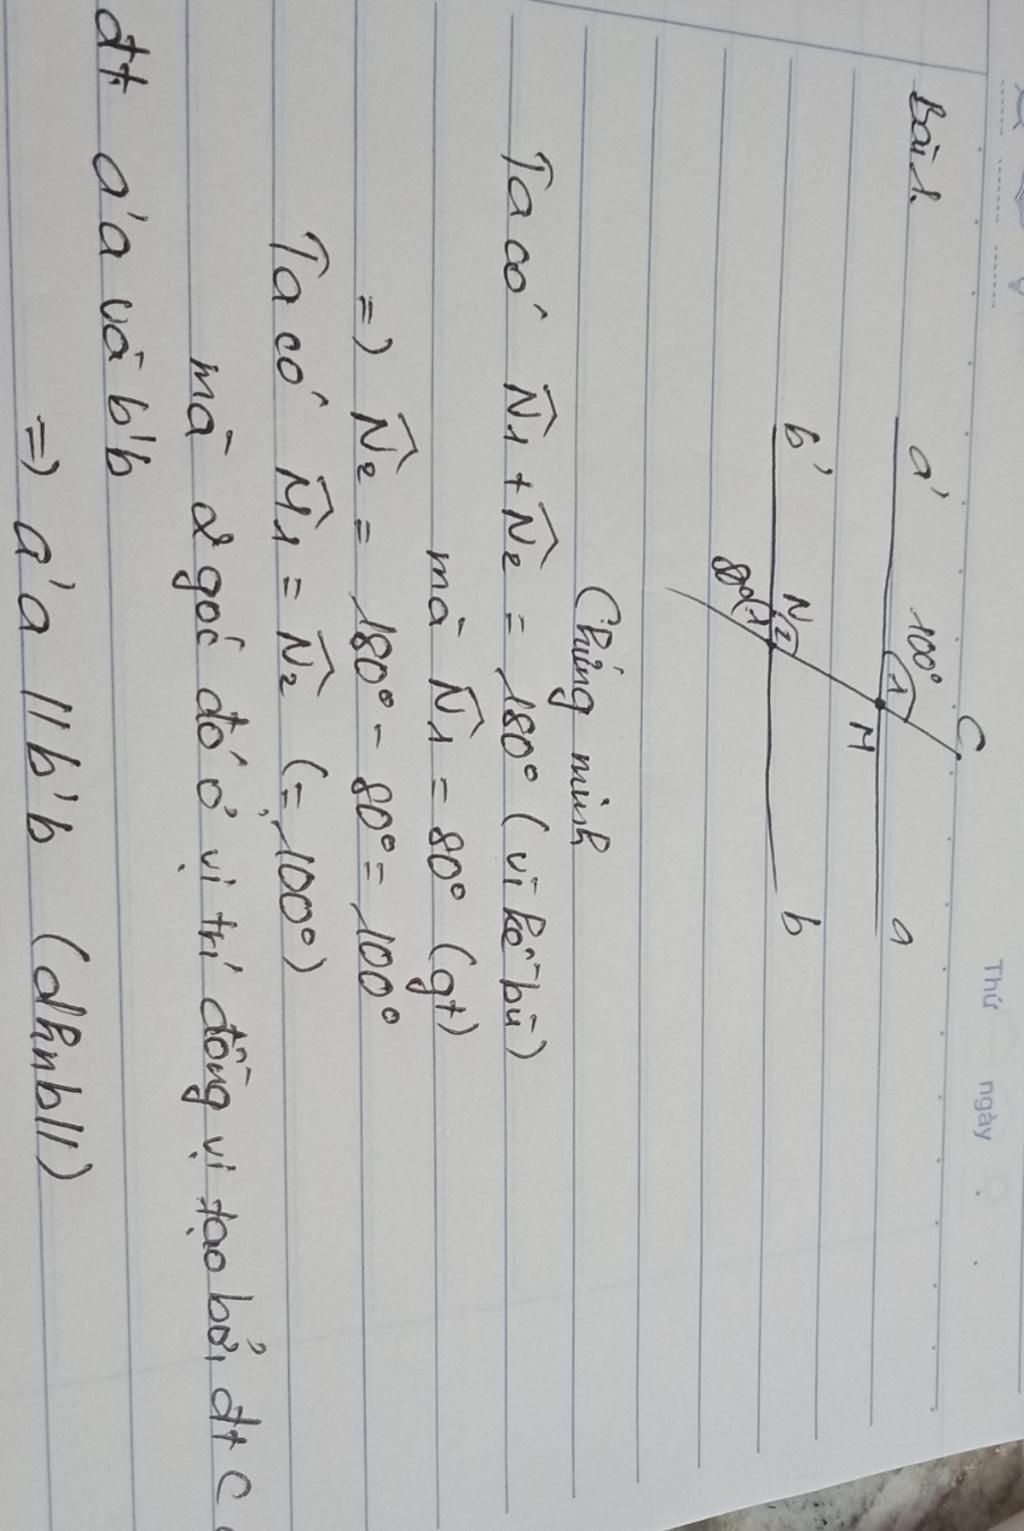 Thứ ngày
Bài 1.
C
a' 100° 1 a
M
b' N 2 b
80° 1
Chứng minh
Ta có N̂1 + N̂2 = 180° (vì kề bù)
mà N̂1 = 80° (gt)
=) N̂2 = 180° - 80° = 100°
Ta có M̂1 = N̂2 (= 100°)
mà 2 góc đó ở vị trí đồng vị tạo bởi đt c
đt a'a và b'b
=) a'a // b'b (dhnb//)